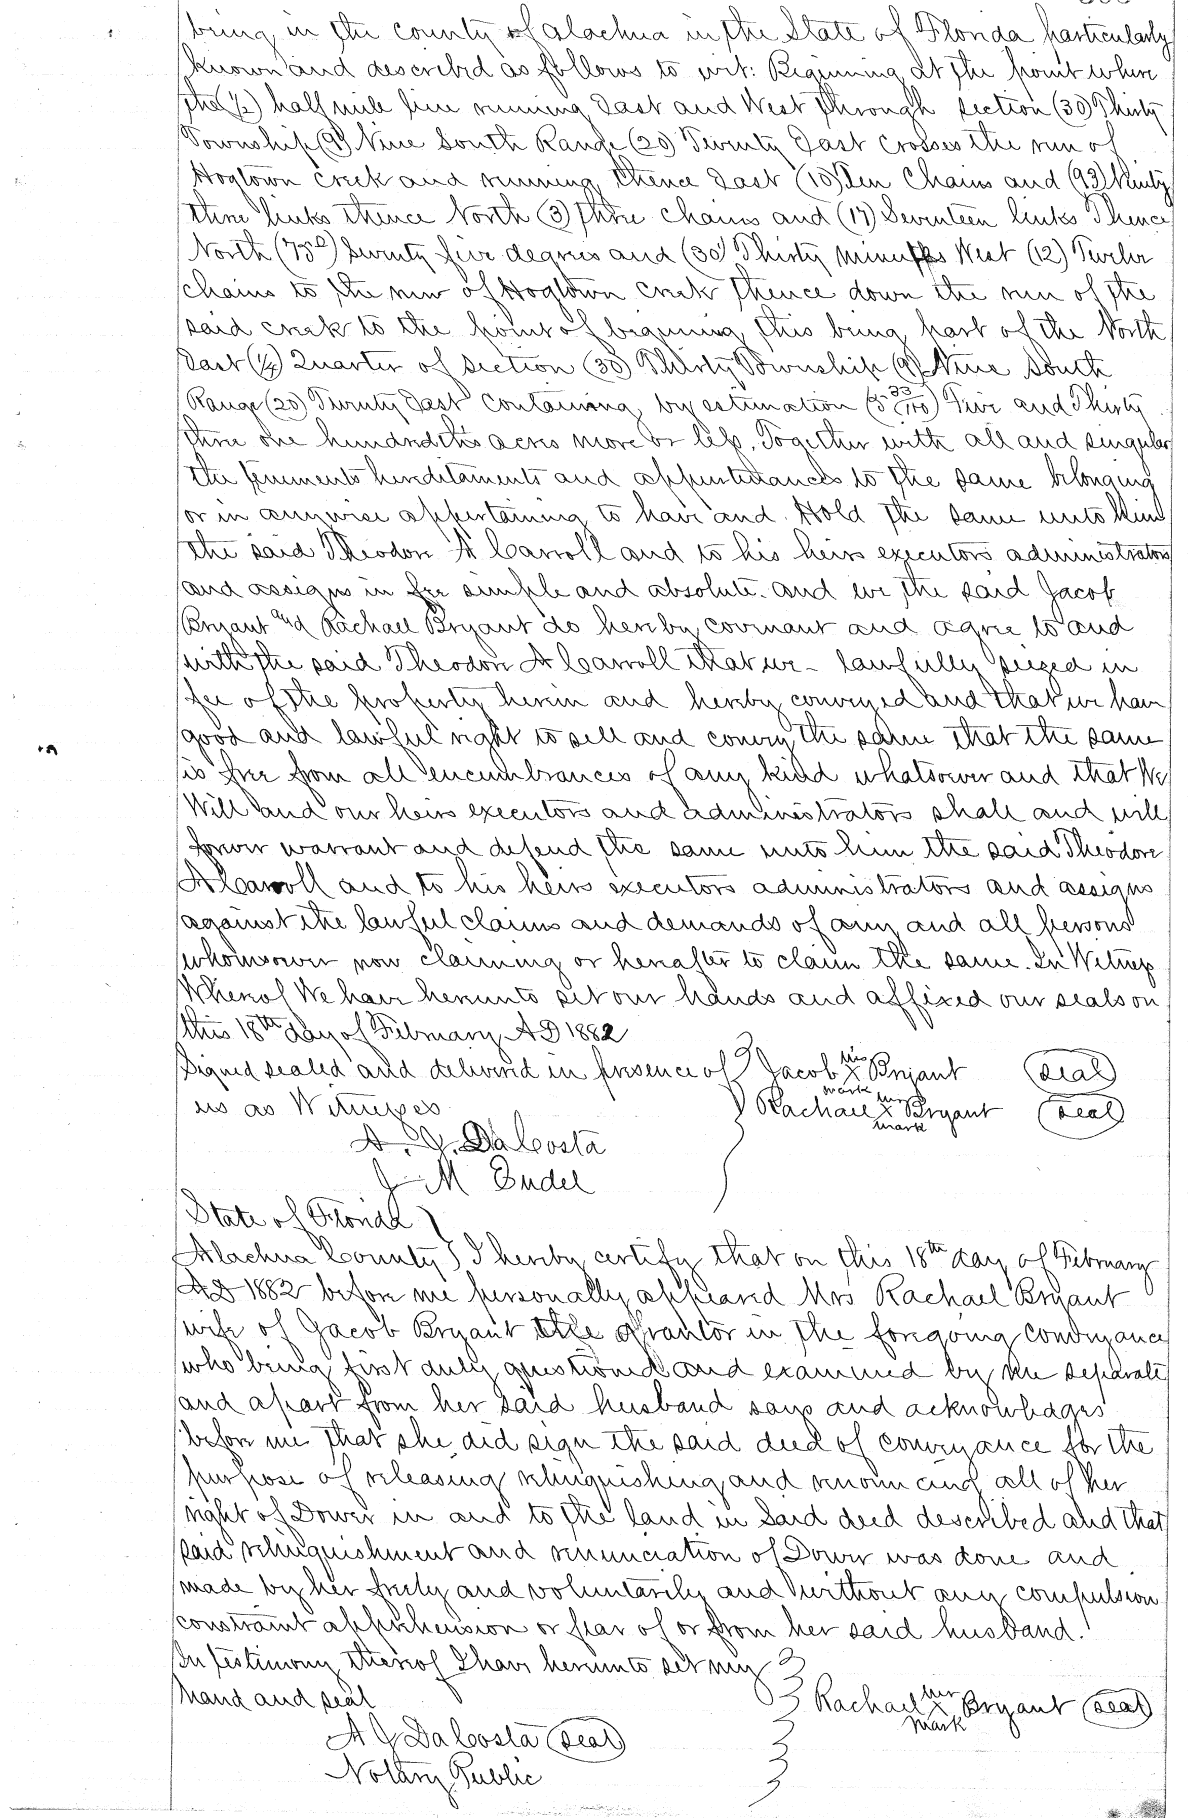 being in the county of Alachua in the State of Florida particularly
known and described as follows to wit: Beginning at the point where
the (½) half mile line running East and West through section (30) Thirty
Township (9) Nine South Range (20) Twenty East crosses the run of
Hogtown creek and running thence East (10) Ten Chains and (93) Ninty
three links thence North (3) three chains and (17) Seventeen links Thence
North (75°) Seventy five degrees and (30) Thirty minutes West (12) Twelve
chains to the run of Hogtown creek thence down the run of the
said creek to the point of begining this being part of the North
East (¼) Quarter of section (30) Thirty Township (9) Nine South
Range (20) Twenty East containing by estimation (5 33/100) Five and Thirty
three one hundredths acres more or less, Together with all and singular
the tenements hereditaments and appurtenances to the same belonging
or in anywise appertaining to have and Hold the same unto him
the said Theodore A Carroll and to his heirs executors administrators
and assigns in fee simple and absolute. and we the said Jacob
Bryant and Rachael Bryant do hereby covenant and agree to and
with the said Theodore A Carroll that we - lawfully seized in
fee of the property herein and hereby conveyed and that we have
good and lawful right to sell and convey the same that the same
is free from all encumbrances of any kind whatsoever and that We
Will and our heirs executors and administrators shall and will
forever warrant and defend the same unto him the said Theodore
A Carroll and to his heirs executors administrators and assigns
against the lawful claims and demands of any and all persons
whomsoever now claiming or hereafter to claim the same. In Witness
Whereof We have hereunto set our hands and affixed our seals on
this 18th day of February AD 1882
Signed sealed and delivered in presence of Jacob his X mark Bryant (seal)
us as Witnesses Rachael her X mark Bryant (seal)
A. J. DaCosta
J M Endel
State of Florida
Alachua County } I hereby certify that on this 18th day of February
AD 1882 before me personally appeared Mrs Rachael Bryant
wife of Jacob Bryant the Grantor in the foregoing conveyance
who being first duly questioned and examined by me separate
and apart from her said husband says and acknowledges
before me that she did sign the said deed of conveyance for the
purpose of releasing relinquishing and renouncing all of her
right of Dower in and to the land in said deed described and that
said relinquishment and renunciation of Dower was done and
made by her freely and voluntarily and without any compulsion
constraint apprehension or fear of or from her said husband.
In testimony thereof I have hereunto set my
hand and seal Rachael her X mark Bryant (seal)
A J DaCosta (seal)
Notary Public